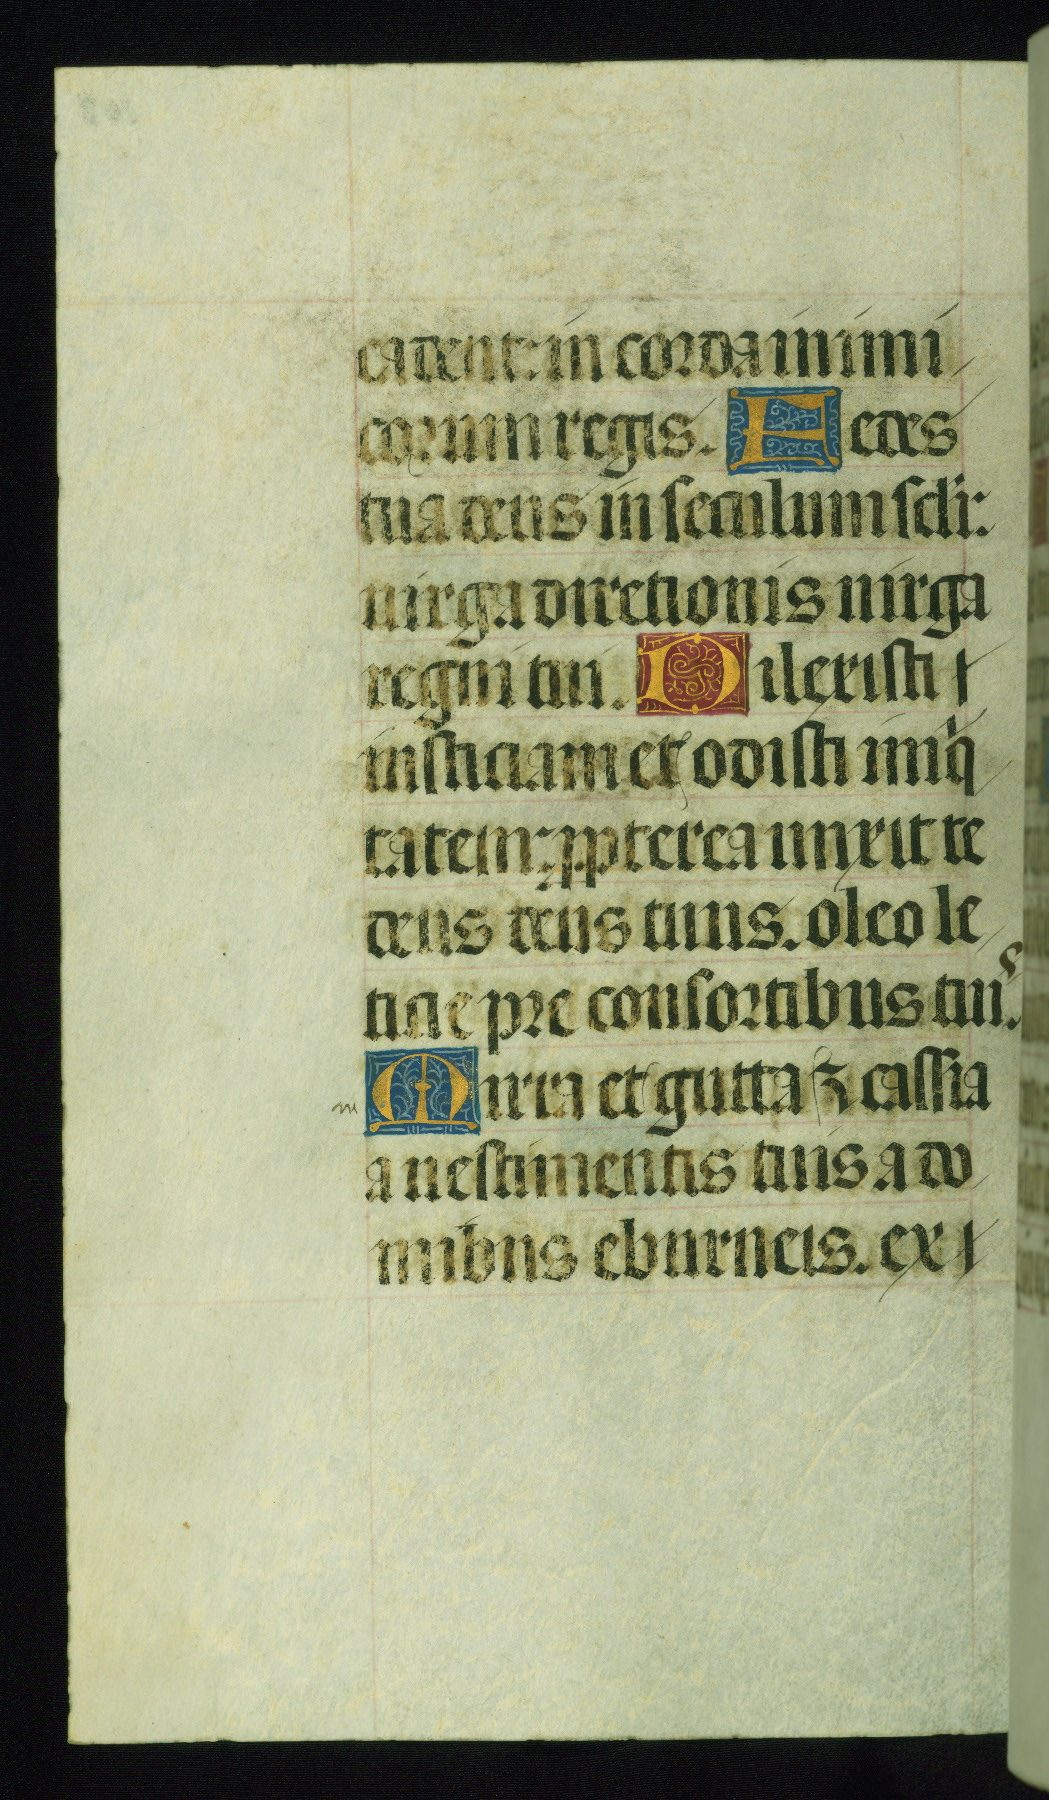 cadent: in corda inimi
corum regis. Sedes
tua deus in seculum scli:
uirga directionis uirga
regni tui. Dilexisti
iusticiam et odisti iniq̄
tatem: ꝓpterea unxit te
deus deus tuus. oleo le
ticie pre consortibus tuis.
m Mirra et gutta ⁊ cassia
a uestimentis tuis. a do
mibus eburneis. ex